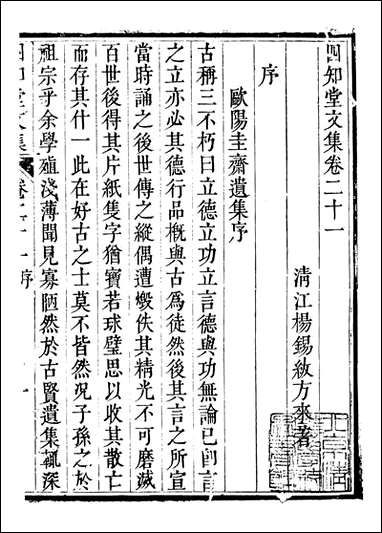 四知堂文集卷二十一
清江楊錫紱方來著
序
歐陽圭齋遺集序
古稱三不朽曰立德立功立言德與功無論已卽言
之立亦必其德行品槪與古爲徒然後其言之所宣
當時誦之後世傳之縱偶遭燬佚其精光不可磨滅
百世後得其片紙隻字猶寶若球璧思以收其散亡
而存其什一此在好古之士莫不皆然況子孫之於
祖宗乎余學殖淺薄聞見寡陋然於古賢遺集輒深